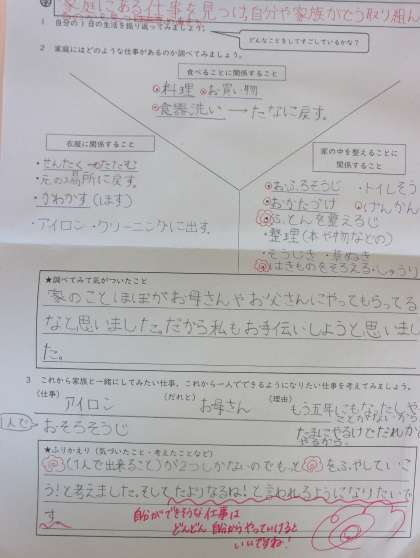 家庭にある仕事を見つけ、自分や家族がどう取り組ん
1 自分の1日の生活を振り返ってみましょう。
どんなことをしてすごしているかな?
2 家庭にはどのような仕事があるのか調べてみましょう。
食べることに関係すること
・料理 ・お買い物
・食器洗い → たなに戻す。
衣服に関係すること
・せんたく→たたむ
・元の場所に戻す。
・かわかす(ほす)
・アイロン・クリーニングに出す。
家の中を整えることに
関係すること
・おふろそうじ ・トイレそう
・おかたづけ ・げんかん
ふとんを整える
・整理(本や物などの)
・そうじき ・草ぬき
はきものをそろえる・しゅうり
★調べてみて気がついたこと
家のことほぼがお母さんやお父さんにやってもらってる
なと思いました。だから私もお手伝いしようと思いまし
た。
3 これから家族と一緒にしてみたい仕事、これから一人でできるようになりたい仕事を考えてみましょう。
(仕事) アイロン (だれと) お母さん (理由) もう五年にも
1人で おそろそうじ
たまにやるけどだれか
やるから。
★ふりかえり(気づいたこと・考えたことなど)
(1人で出来ること)が2つしかないのでもっと をふやしていこ
う!と考えました。そしてたよりなるね!と言われるようになりたいで
す
自分ができそうな仕事は
どんどん自分からやっていけると
いいですね!